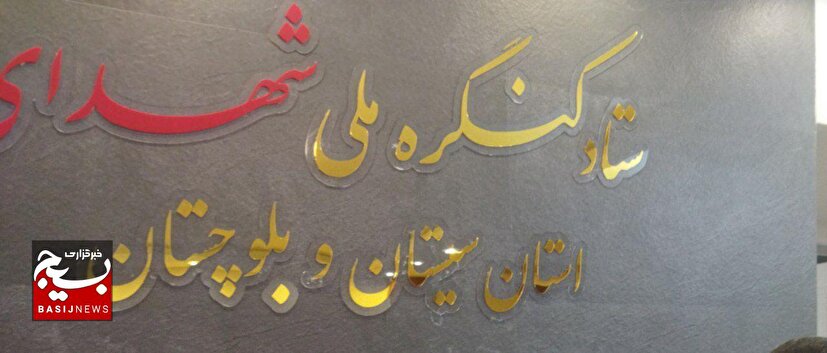 ستاد کنگره ملی شهدای
استان سیستان و بلوچستان
خبرگزاری
بسیج
BASIJNEWS